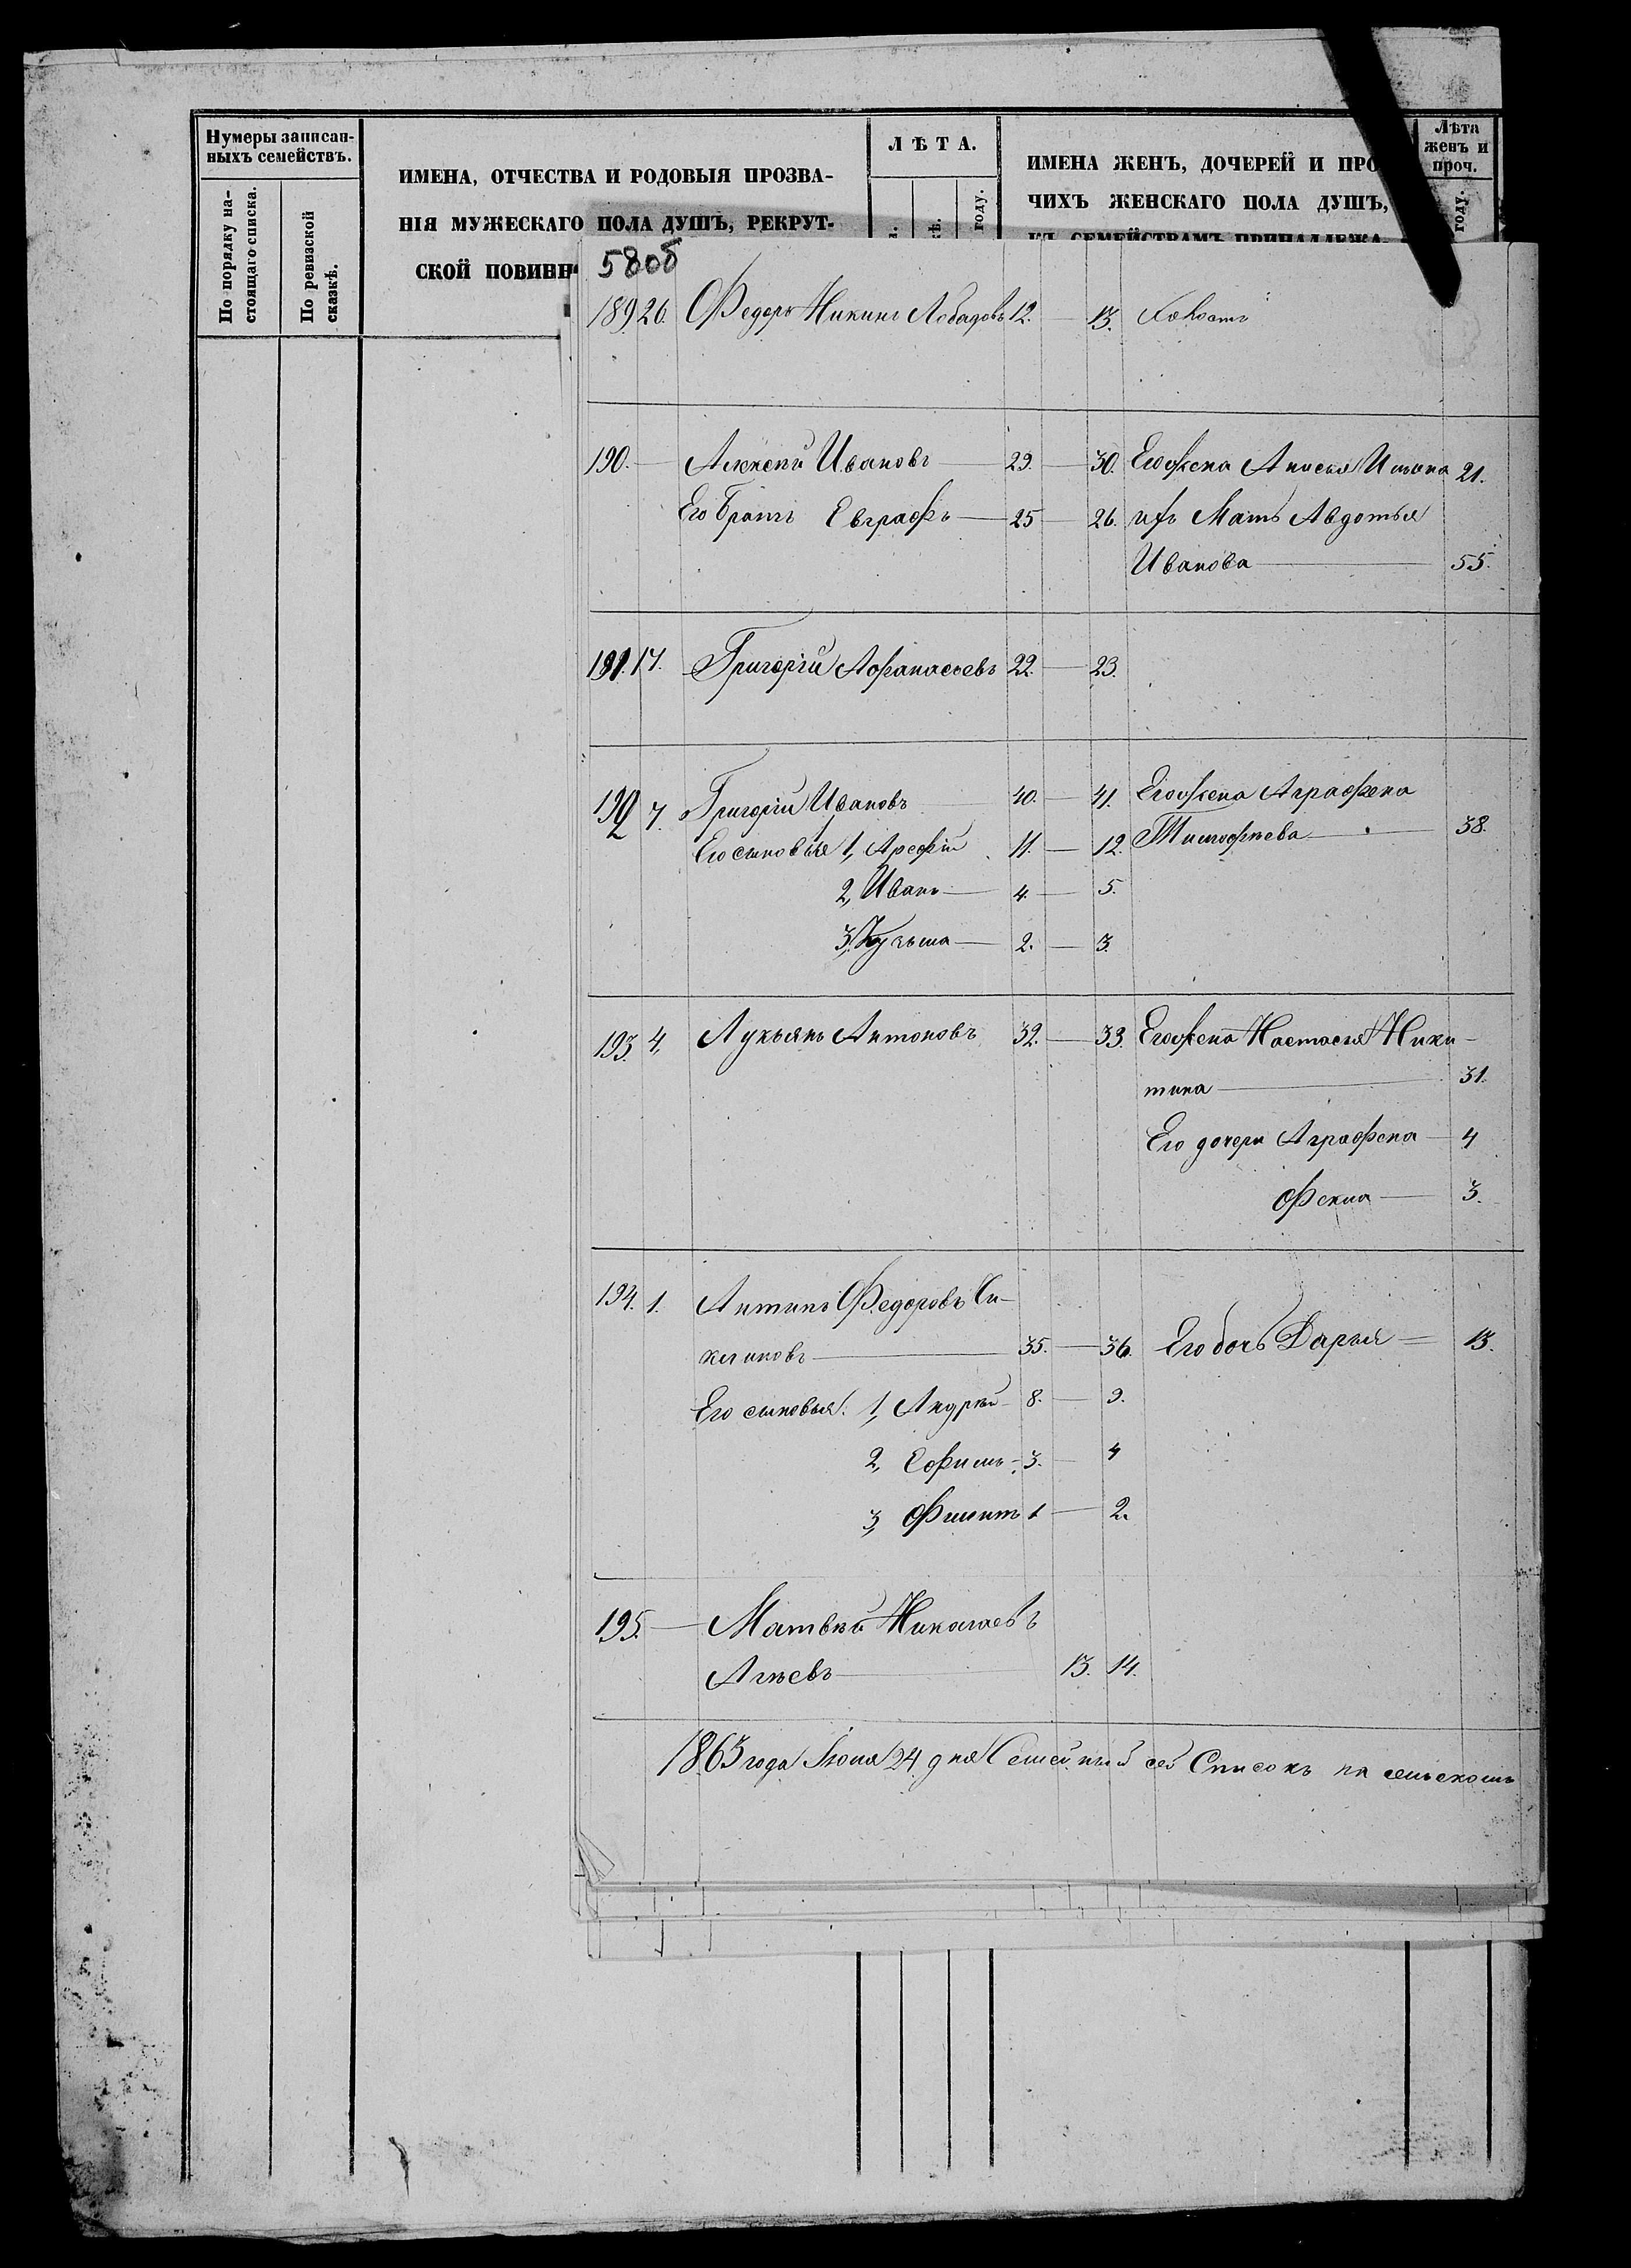 Нумеры записан-
ныхъ семействъ.
По порядку на-
стоящаго списка.
По ревизской
сказкѣ.
ИМЕНА, ОТЧЕСТВА И РОДОВЫЯ ПРОЗВА-
НІЯ МУЖЕСКАГО ПОЛА ДУШЪ, РЕКРУТ-
СКОЙ ПОВИНН
ЛѢТА.
году.
ИМЕНА ЖЕНЪ, ДОЧЕРЕЙ И ПРО
ЧИХЪ ЖЕНСКАГО ПОЛА ДУШЪ,
КЪ СЕМЕЙСТВАМЪ ПРИНАДЛЕЖА
Лѣта
женъ и
проч.
году.
580б
189 26. Федоръ 12. — 13. Холостъ
190. — Алексѣй Ивановъ — 29. — 30. Его жена Анисья 21.
Его братъ Евграфъ — 25 — 26. ихъ Мать Авдотья
Иванова — 55.
191. 17. Григорій Афанасьевъ 22. — 23.
192 7. Григорій Ивановъ 40. — 41. Его жена Аграфена
Тимофѣева — 38.
Его сыновья 1, Арефій 11. — 12.
2, Иванъ — 4. — 5.
3, Кузьма — 2. — 3.
193. 4. Лукьянъ Антоновъ 32. — 33. Его жена Настасья Ники-
тина — 31.
Его дочери Аграфена — 4
Фекла — 3.
194. 1. Антипъ Федоровъ Си-
35. — 36. Его дочь Дарья — 13.
Его сыновья: 1, Андрѣй 8. — 9.
2, Ефимъ — 3. — 4
3, Филипъ 1 — 2.
195. — Матвѣй Николаевъ
Агѣевъ — 13. 14.
1863 года Іюня 24 дня Семейный сей Списокъ на сельскомъ